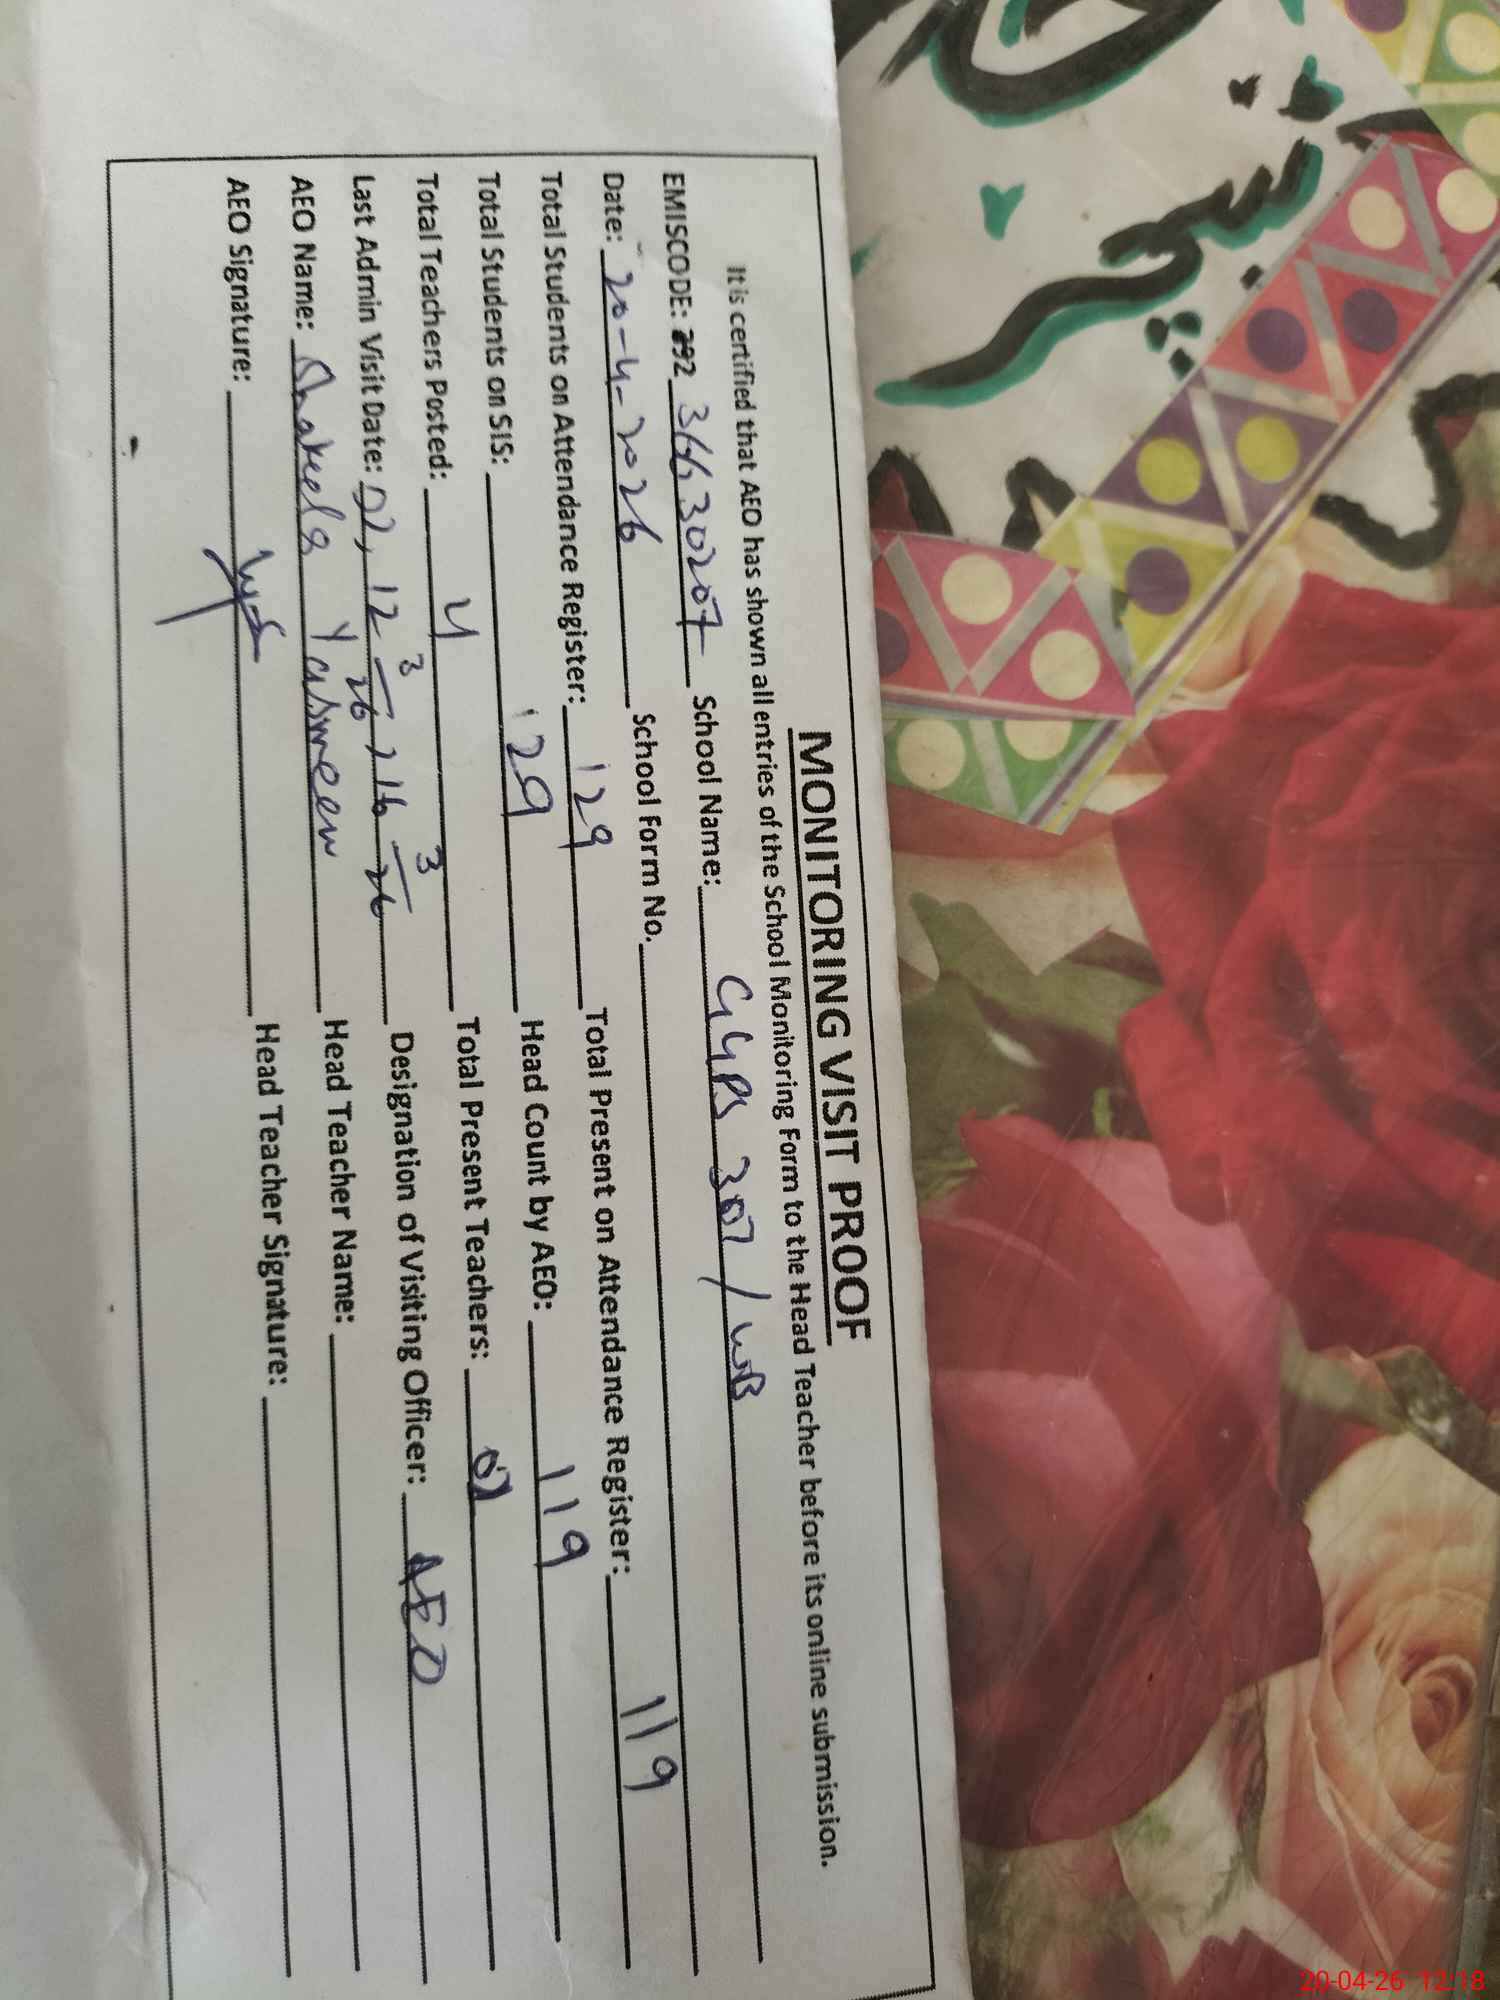 MONITORING VISIT PROOF
It is certified that AEO has shown all entries of the School Monitoring Form to the Head Teacher before its online submission.
EMISCODE: 292 36630207 School Name: GGPS 307/WB
Date: 20-4-2026 School Form No.
Total Students on Attendance Register: 129 Total Present on Attendance Register: 119
Total Students on SIS: 129 Head Count by AEO: 119
Total Teachers Posted: 4 Total Present Teachers:
Last Admin Visit Date: 12 3/26, 16 3/26 Designation of Visiting Officer: AEO
AEO Name: Shakeela Yasmeen Head Teacher Name:
AEO Signature: Head Teacher Signature:
20-04-26 12:18